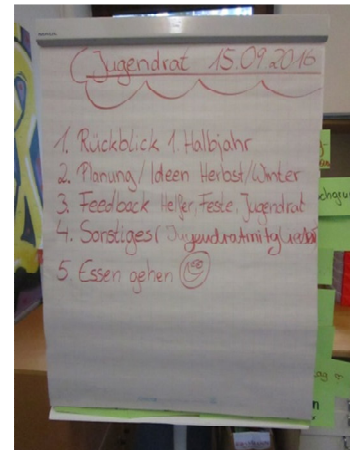 Jugendrat 15.09.2016
1. Rückblick 1. Halbjahr
2. Planung/Ideen Herbst/Winter
3. Feedback Helfer, Feste, Jugendrat
4. Sonstiges (Jugendratmitglieder
5. Essen gehen